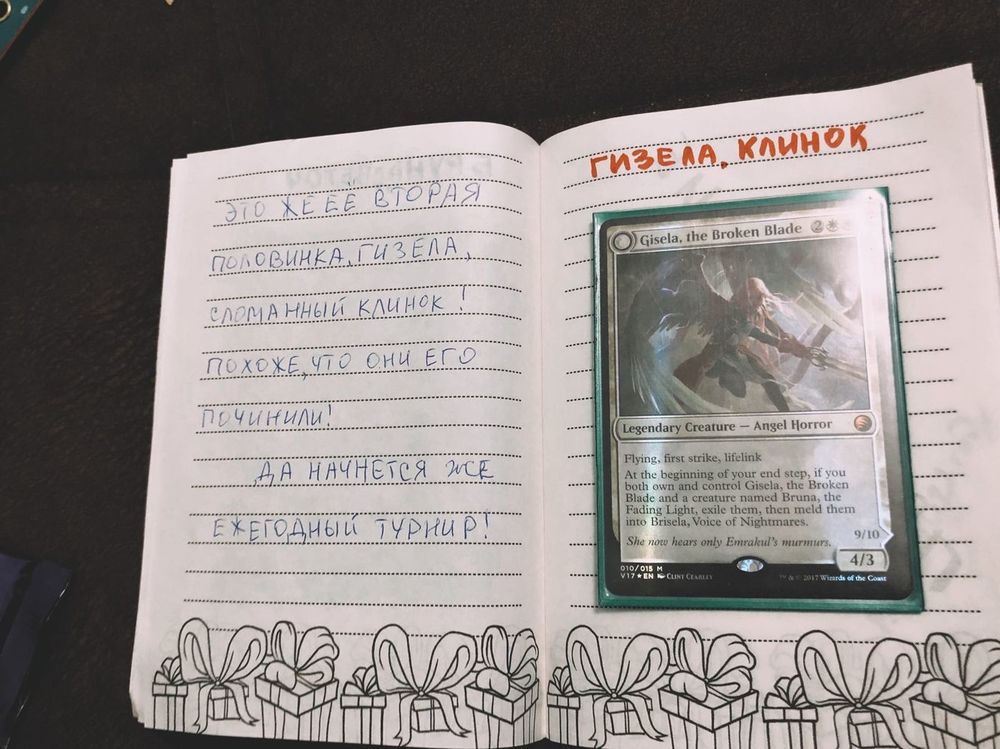 ЭТО ЖЕ ЕЁ ВТОРАЯ
ПОЛОВИНКА, ГИЗЕЛА,
СЛОМАННЫЙ КЛИНОК!
ПОХОЖЕ, ЧТО ОНИ ЕГО
ПОЧИНИЛИ!
ДА НАЧНЕТСЯ ЖЕ
ЕЖЕГОДНЫЙ ТУРНИР!
ГИЗЕЛА, КЛИНОК
Gisela, the Broken Blade 2
Legendary Creature — Angel Horror
Flying, first strike, lifelink
At the beginning of your end step, if you
both own and control Gisela, the Broken
Blade and a creature named Bruna, the
Fading Light, exile them, then meld them
into Brisela, Voice of Nightmares.
She now hears only Emrakul's murmurs.
9/10
4/3
010/015 M
V17 ★ EN CLINT CEARLEY
™ & © 2017 Wizards of the Coast